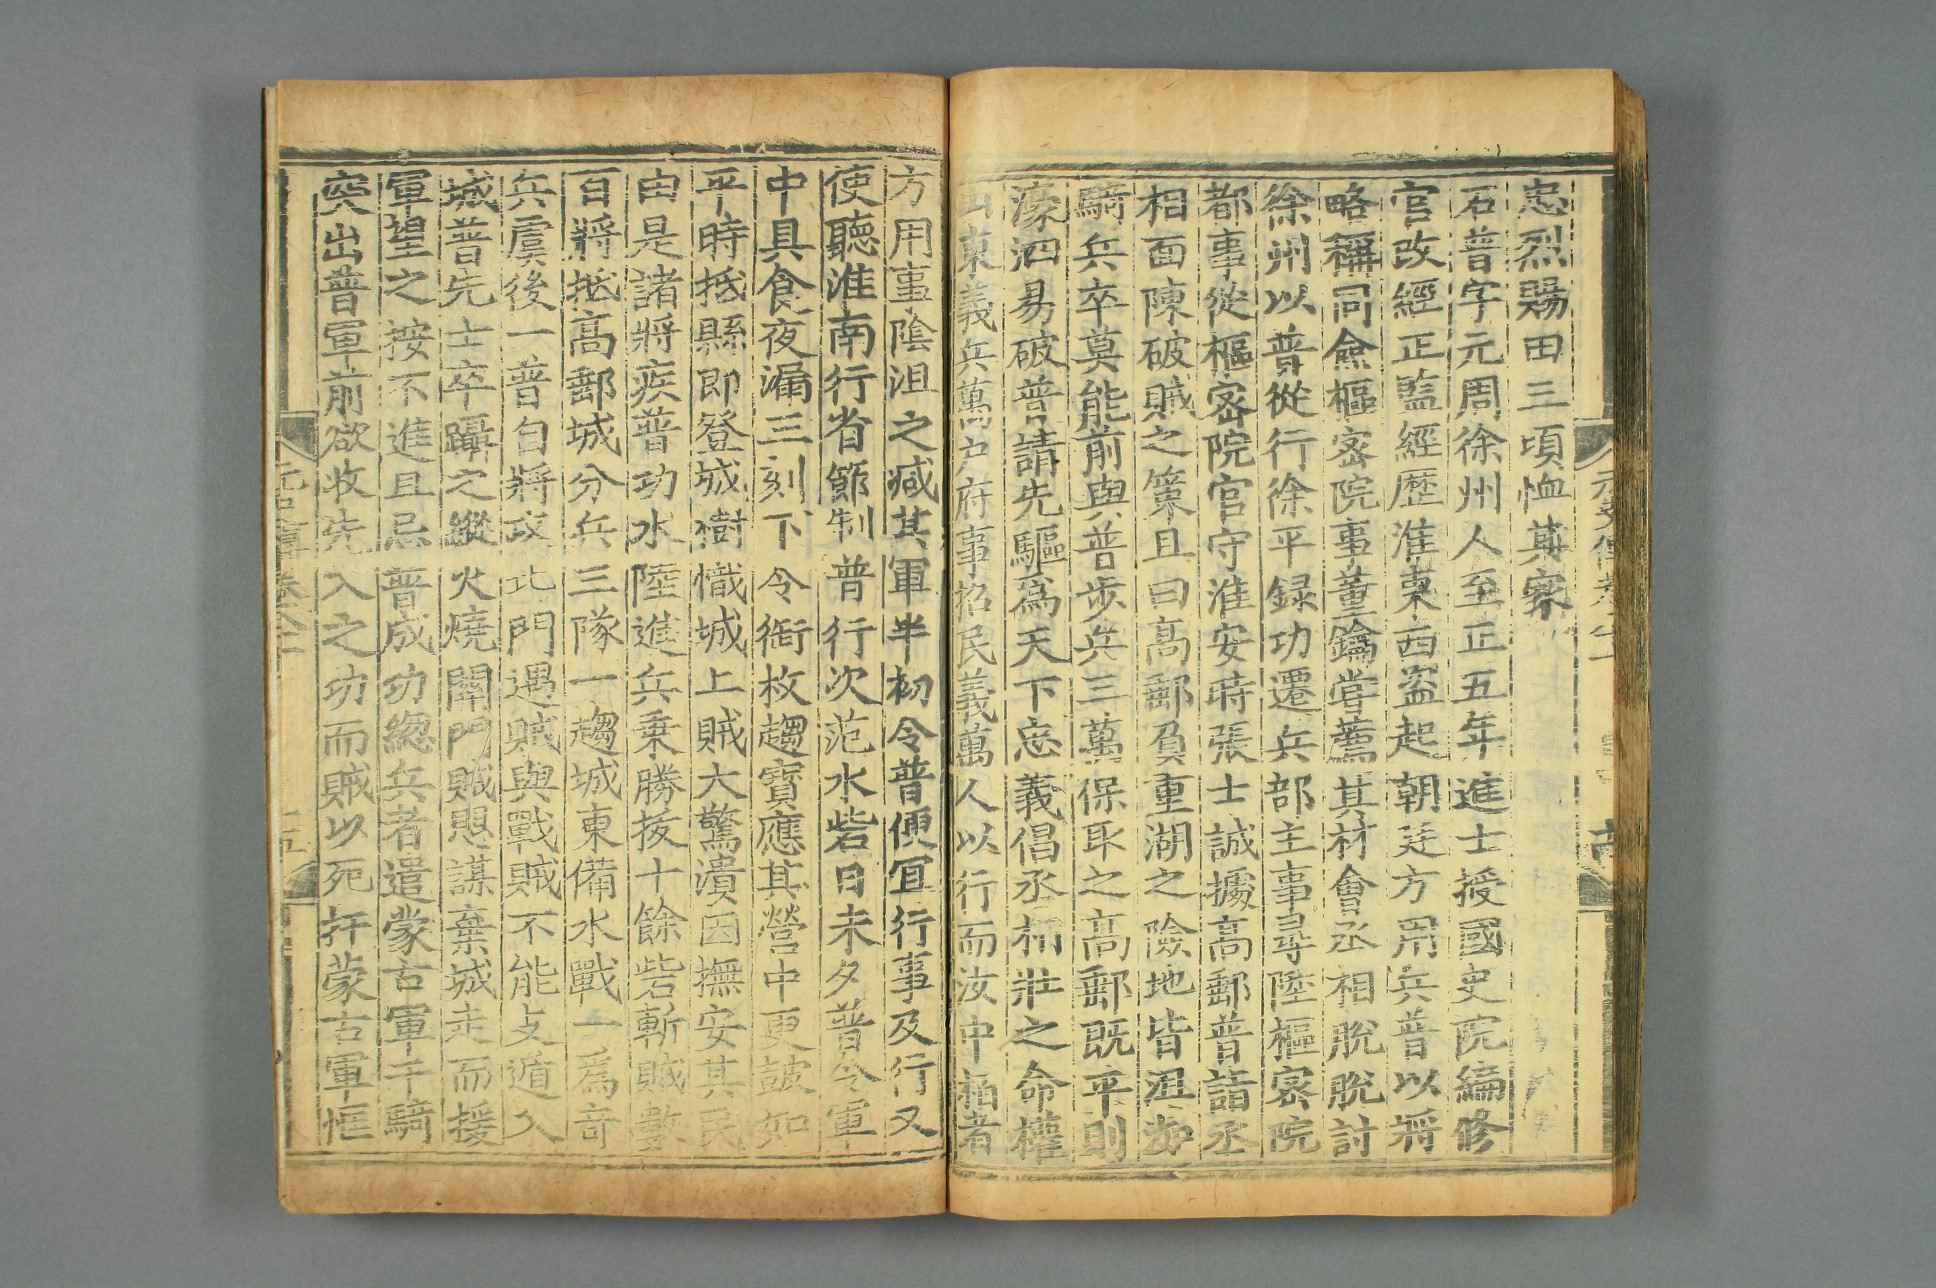 忠烈賜田三頃恤其家
石普字元周徐州人至正五年進士授國史院編修
官改經正監經歷淮東西盜起朝廷方用兵普以將
略稱同僉樞密院事董鑰嘗薦其材會丞相脫脫討
徐州以普從行徐平録功遷兵部主事尋陞樞密院
都事從樞密院官守淮安時張士誠據高郵普詣丞
相面陳破賊之策且曰高郵負重湖之險地皆沮洳
騎兵卒莫能前與普步兵三萬保取之高郵既平則
濠泗易破普請先驅爲天下忠義倡丞相壯之命權
山東義兵萬户府事招民義萬人以行而汝中柏者
方用事陰沮之减其軍半初令普便宜行事及行又
使聽淮南行省節制普行次范水砦日未夕普令軍
中具食夜漏三刻下令銜枚趨寶應其營中更鼓如
平時抵縣即登城樹幟城上賊大驚潰因撫安其民
由是諸將疾普功水陸進兵乗勝拔十餘砦斬賊數
百將抵高郵城分兵三隊一趨城東備水戰一爲奇
兵虞後一普自將攻北門遇賊與戰賊不能支遁入
城普先士卒躡之縱火燒關門賊懼謀棄城走而援
軍望之按不進且忌普成功緫兵者遣蒙古軍千騎
突出普軍前欲收先入之功而賊以死扞蒙古軍恇